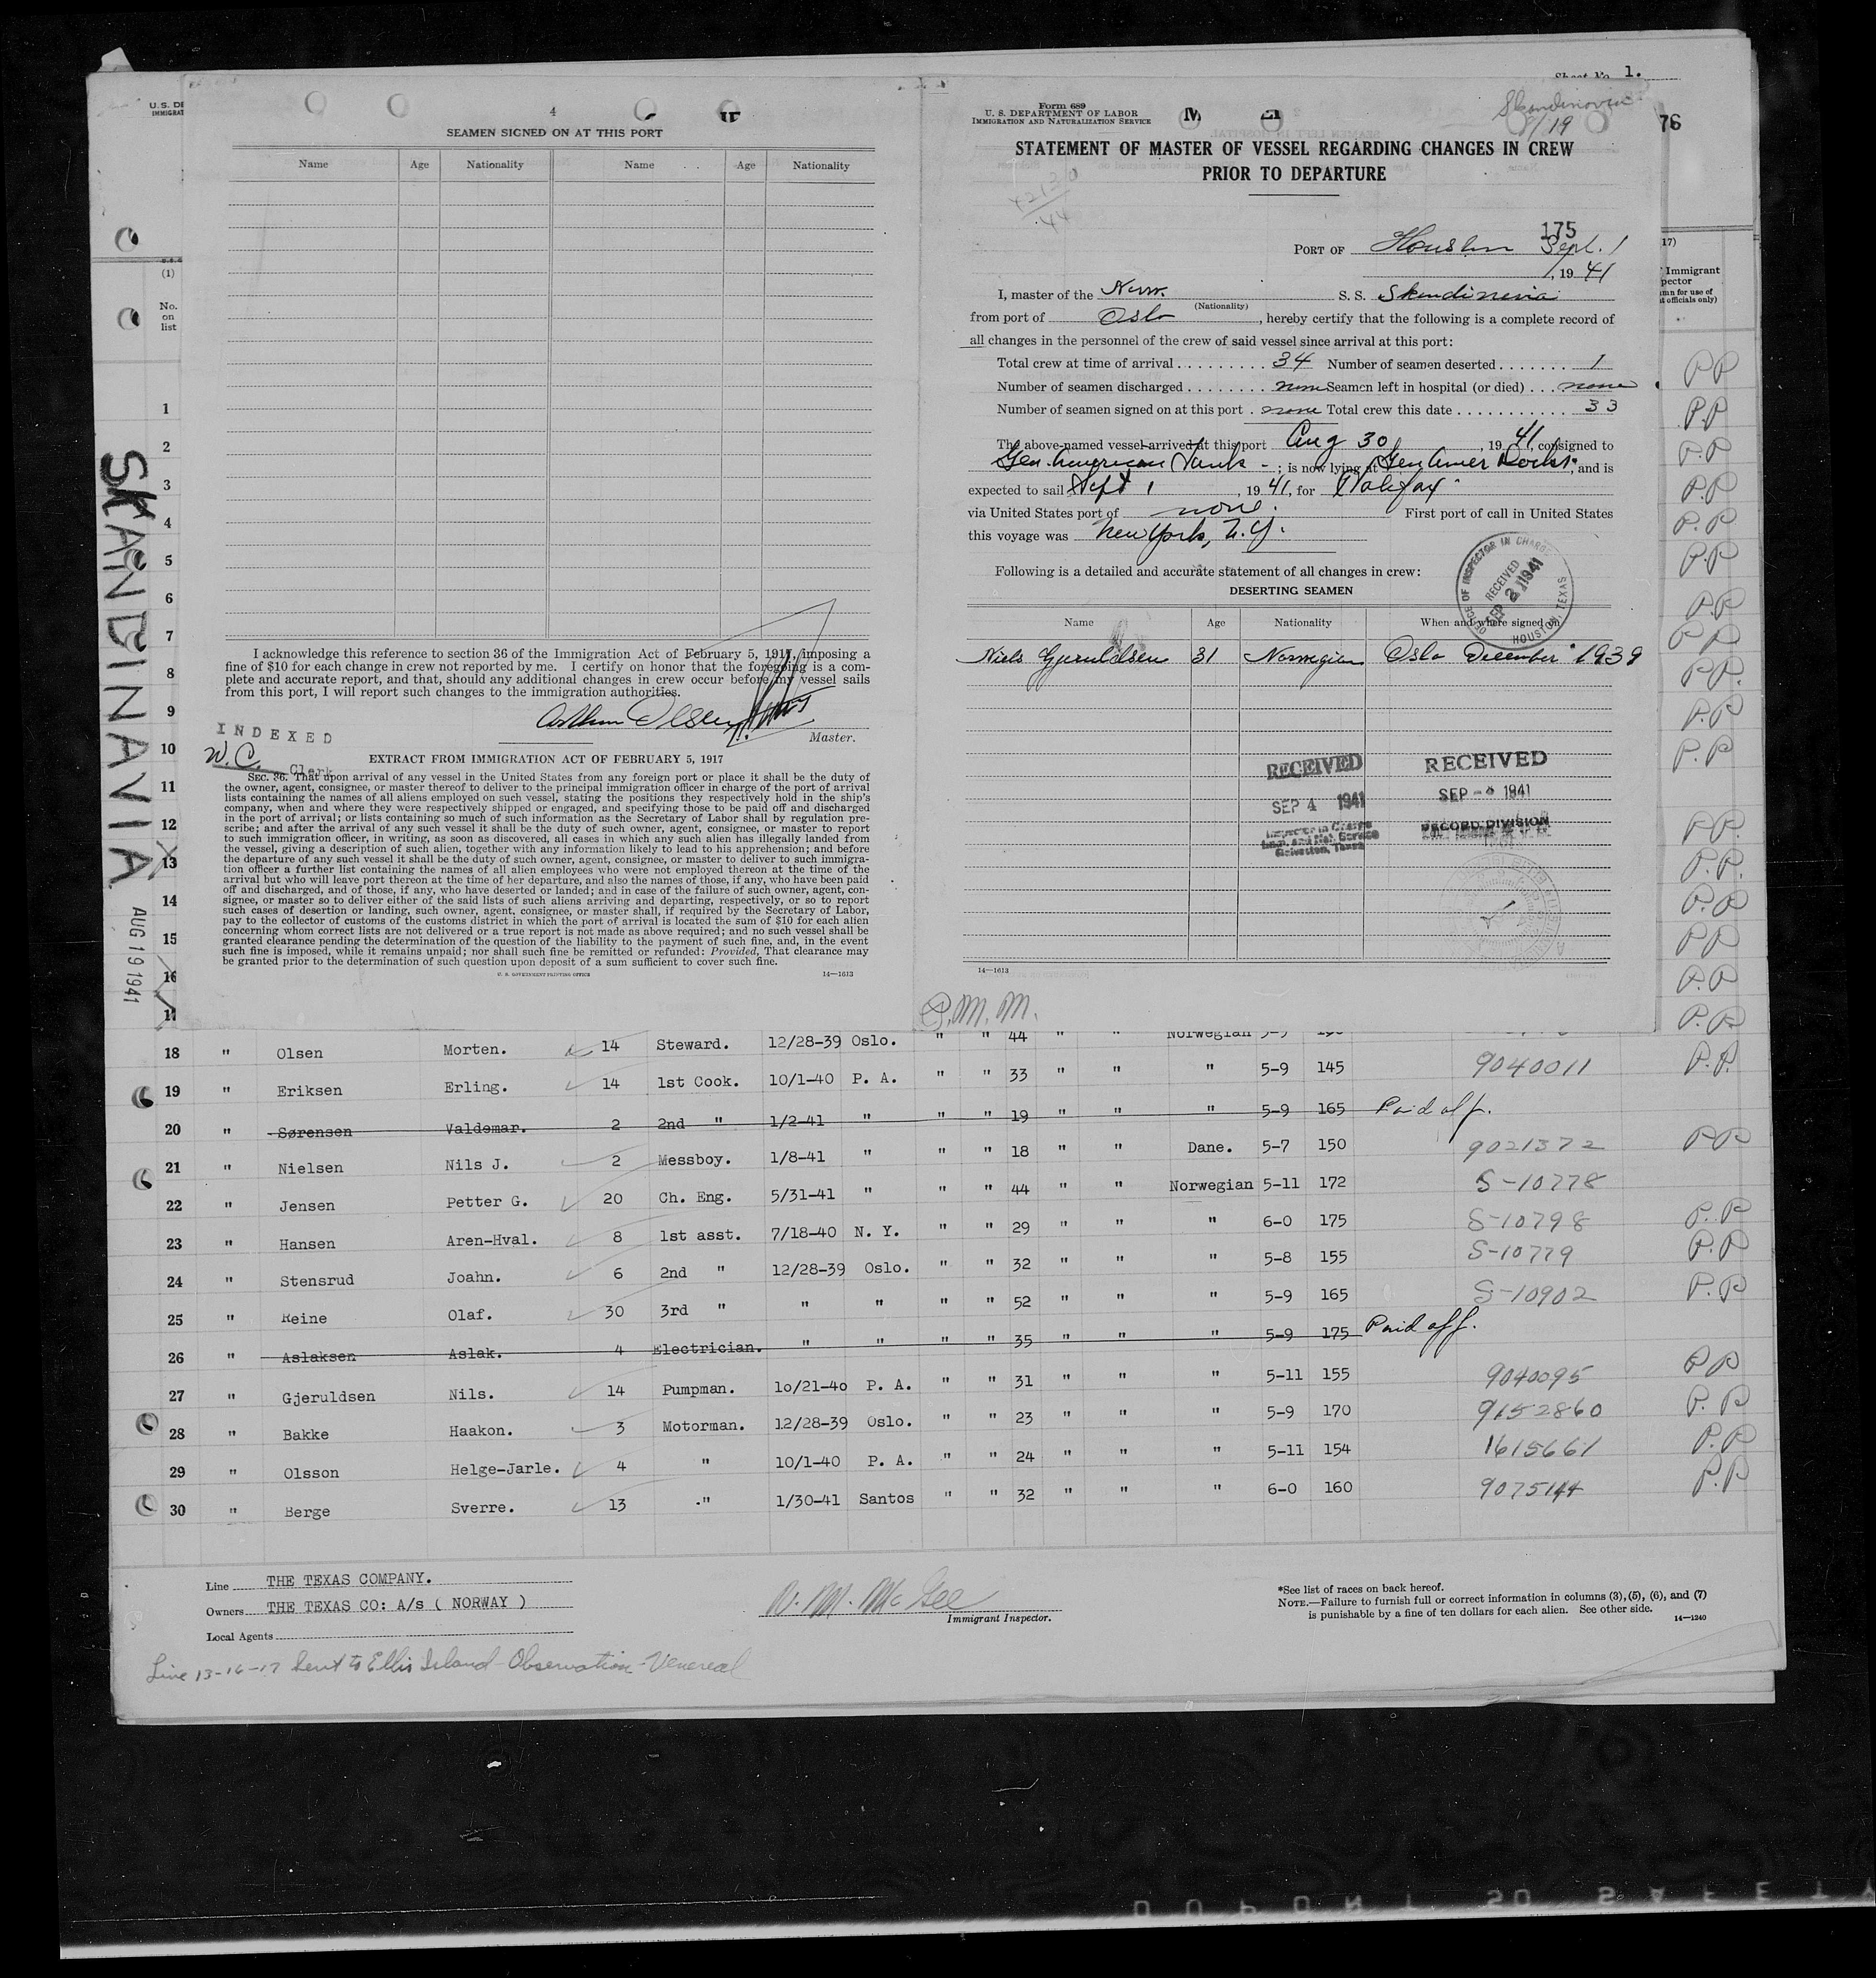 Sheet No. 1.
U. S. DE
IMMIGRAT
4
SEAMEN SIGNED ON AT THIS PORT
Name Age Nationality Name Age Nationality
I acknowledge this reference to section 36 of the Immigration Act of February 5, 1917, imposing a
fine of $10 for each change in crew not reported by me. I certify on honor that the foregoing is a com-
plete and accurate report, and that, should any additional changes in crew occur before my vessel sails
from this port, I will report such changes to the immigration authorities.
Arthur Olsen
Master.
INDEXED
W. C.
Clerk
EXTRACT FROM IMMIGRATION ACT OF FEBRUARY 5, 1917
SEC. 36. That upon arrival of any vessel in the United States from any foreign port or place it shall be the duty of
the owner, agent, consignee, or master thereof to deliver to the principal immigration officer in charge of the port of arrival
lists containing the names of all aliens employed on such vessel, stating the positions they respectively hold in the ship's
company, when and where they were respectively shipped or engaged, and specifying those to be paid off and discharged
in the port of arrival; or lists containing so much of such information as the Secretary of Labor shall by regulation pre-
scribe; and after the arrival of any such vessel it shall be the duty of such owner, agent, consignee, or master to report
to such immigration officer, in writing, as soon as discovered, all cases in which any such alien has illegally landed from
the vessel, giving a description of such alien, together with any information likely to lead to his apprehension; and before
the departure of any such vessel it shall be the duty of such owner, agent, consignee, or master to deliver to such immigra-
tion officer a further list containing the names of all alien employees who were not employed thereon at the time of the
arrival but who will leave port thereon at the time of her departure, and also the names of those, if any, who have been paid
off and discharged, and of those, if any, who have deserted or landed; and in case of the failure of such owner, agent, con-
signee, or master so to deliver either of the said lists of such aliens arriving and departing, respectively, or so to report
such cases of desertion or landing, such owner, agent, consignee, or master shall, if required by the Secretary of Labor,
pay to the collector of customs of the customs district in which the port of arrival is located the sum of $10 for each alien
concerning whom correct lists are not delivered or a true report is not made as above required; and no such vessel shall be
granted clearance pending the determination of the question of the liability to the payment of such fine, and, in the event
such fine is imposed, while it remains unpaid; nor shall such fine be remitted or refunded: Provided, That clearance may
be granted prior to the determination of such question upon deposit of a sum sufficient to cover such fine.
U. S. GOVERNMENT PRINTING OFFICE 14—1613
Form 689
U. S. DEPARTMENT OF LABOR
IMMIGRATION AND NATURALIZATION SERVICE
Skandinavia
8/19
76
STATEMENT OF MASTER OF VESSEL REGARDING CHANGES IN CREW
PRIOR TO DEPARTURE
175
PORT OF Houston Sept. 1
, 19 41
I, master of the Norw. S. S. Skandinavia
(Nationality)
from port of Oslo, hereby certify that the following is a complete record of
all changes in the personnel of the crew of said vessel since arrival at this port:
Total crew at time of arrival 34 Number of seamen deserted 1
Number of seamen discharged none Seamen left in hospital (or died) none
Number of seamen signed on at this port none Total crew this date 33
The above-named vessel arrived at this port Aug 30, 19 41, consigned to
Gen. American Tank - ; is now lying at Gen Amer Docks, and is
expected to sail Sept 1, 19 41, for Halifax
via United States port of none. First port of call in United States
this voyage was New York, N.Y.
Following is a detailed and accurate statement of all changes in crew:
DESERTING SEAMEN
OFFICE OF INSPECTOR IN CHARGE
RECEIVED
SEP 2 1941
HOUSTON, TEXAS
Name Age Nationality When and where signed on
Niels Gjeruldsen 31 Norwegian Oslo December 1939
RECEIVED
SEP 4 1941
Inspector in Charge
Imm. and Nat. Service
Galveston, Texas
RECEIVED
SEP - 1941
RECORD DIVISION
14—1613
P. M. M.
SKANDINAVIA
AUG 19 1941
(1)
No.
on
list
17)
Immigrant
pector
mn for use of
t officials only)
1 PP
2 P.P
3 P.P
4 P.P
5 P.P
6 P.P
7 P.P
8 P P
9 P.P.
10 P.P
11 P.P
12 P.P.
13 P.P.
14 P.P
15 P P
16 P.P
17 P.P.
18 " Olsen Morten. 14 Steward. 12/28-39 Oslo. " " 44 " " Norwegian
19 " Eriksen Erling. 14 1st Cook. 10/1-40 P. A. " " 33 " " " 5-9 145 9040011 P.P.
20 " Sørensen Valdemar. 2 2nd " 1/2-41 " " " 19 " " " 5-9 165 Paid off.
21 " Nielsen Nils J. 2 Messboy. 1/8-41 " " " 18 " " Dane. 5-7 150 9021372 PP
22 " Jensen Petter G. 20 Ch. Eng. 5/31-41 " " " 44 " " Norwegian 5-11 172 S-10778
23 " Hansen Aren-Hval. 8 1st asst. 7/18-40 N. Y. " " 29 " " " 6-0 175 S-10798 P.P
24 " Stensrud Joahn. 6 2nd " 12/28-39 Oslo. " " 32 " " " 5-8 155 S-10779 P.P
25 " Reine Olaf. 30 3rd " " " " " 52 " " " 5-9 165 S-10902 P.P
26 " Aslaksen Aslak. 4 Electrician. " " " " 35 " " " 5-9 175 Paid off.
27 " Gjeruldsen Nils. 14 Pumpman. 10/21-40 P. A. " " 31 " " " 5-11 155 9040095 PP
28 " Bakke Haakon. 3 Motorman. 12/28-39 Oslo. " " 23 " " " 5-9 170 9152860 P.P
29 " Olsson Helge-Jarle. 4 " 10/1-40 P. A. " " 24 " " " 5-11 154 1615661 P.P
30 " Berge Sverre. 13 " 1/30-41 Santos " " 32 " " " 6-0 160 9075144 P.P
Line THE TEXAS COMPANY.
Owners THE TEXAS CO: A/s ( NORWAY )
Local Agents
D. M. McGee
Immigrant Inspector.
*See list of races on back hereof.
NOTE.—Failure to furnish full or correct information in columns (3), (5), (6), and (7)
is punishable by a fine of ten dollars for each alien. See other side. 14—1240
Line 13-16-17 Sent to Ellis Island - Observation - Venereal